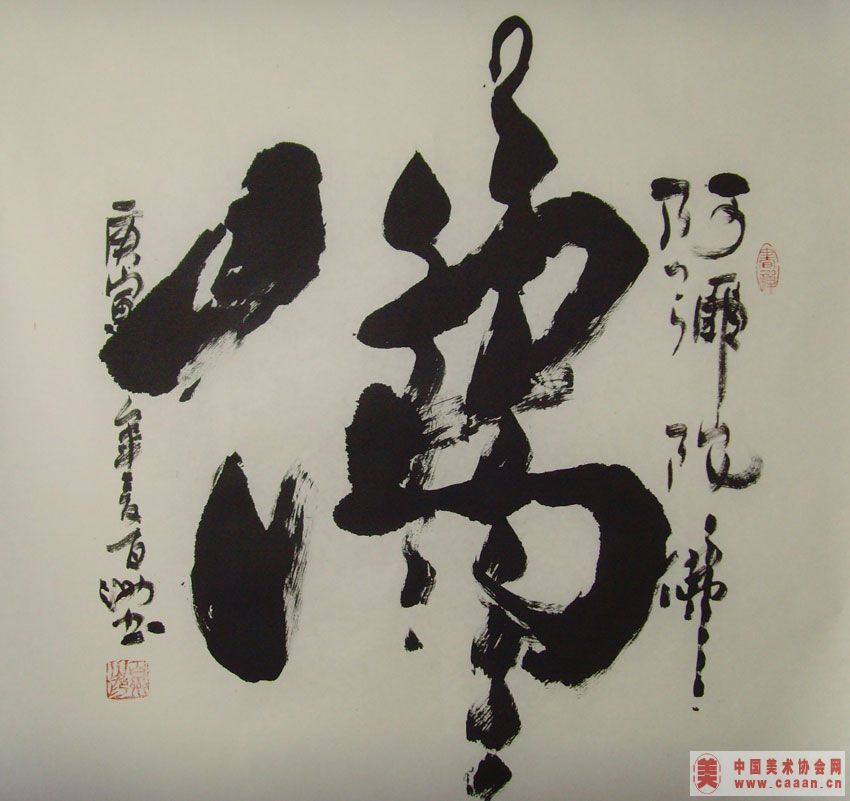 阿弥陀佛
佛
庚寅年夏百洲书
書禅
中国美术协会网
www.caaan.cn